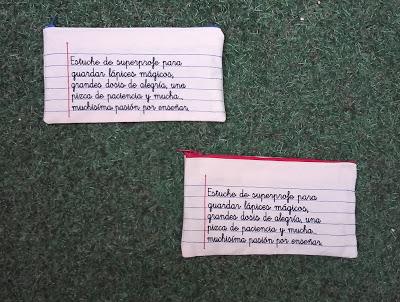 Estuche de superprofe para
guardar lápices mágicos,
grandes dosis de alegría, una
pizca de paciencia y mucha...
muchísima pasión por enseñar.
Estuche de superprofe para
guardar lápices mágicos,
grandes dosis de alegría, una
pizca de paciencia y mucha...
muchísima pasión por enseñar.